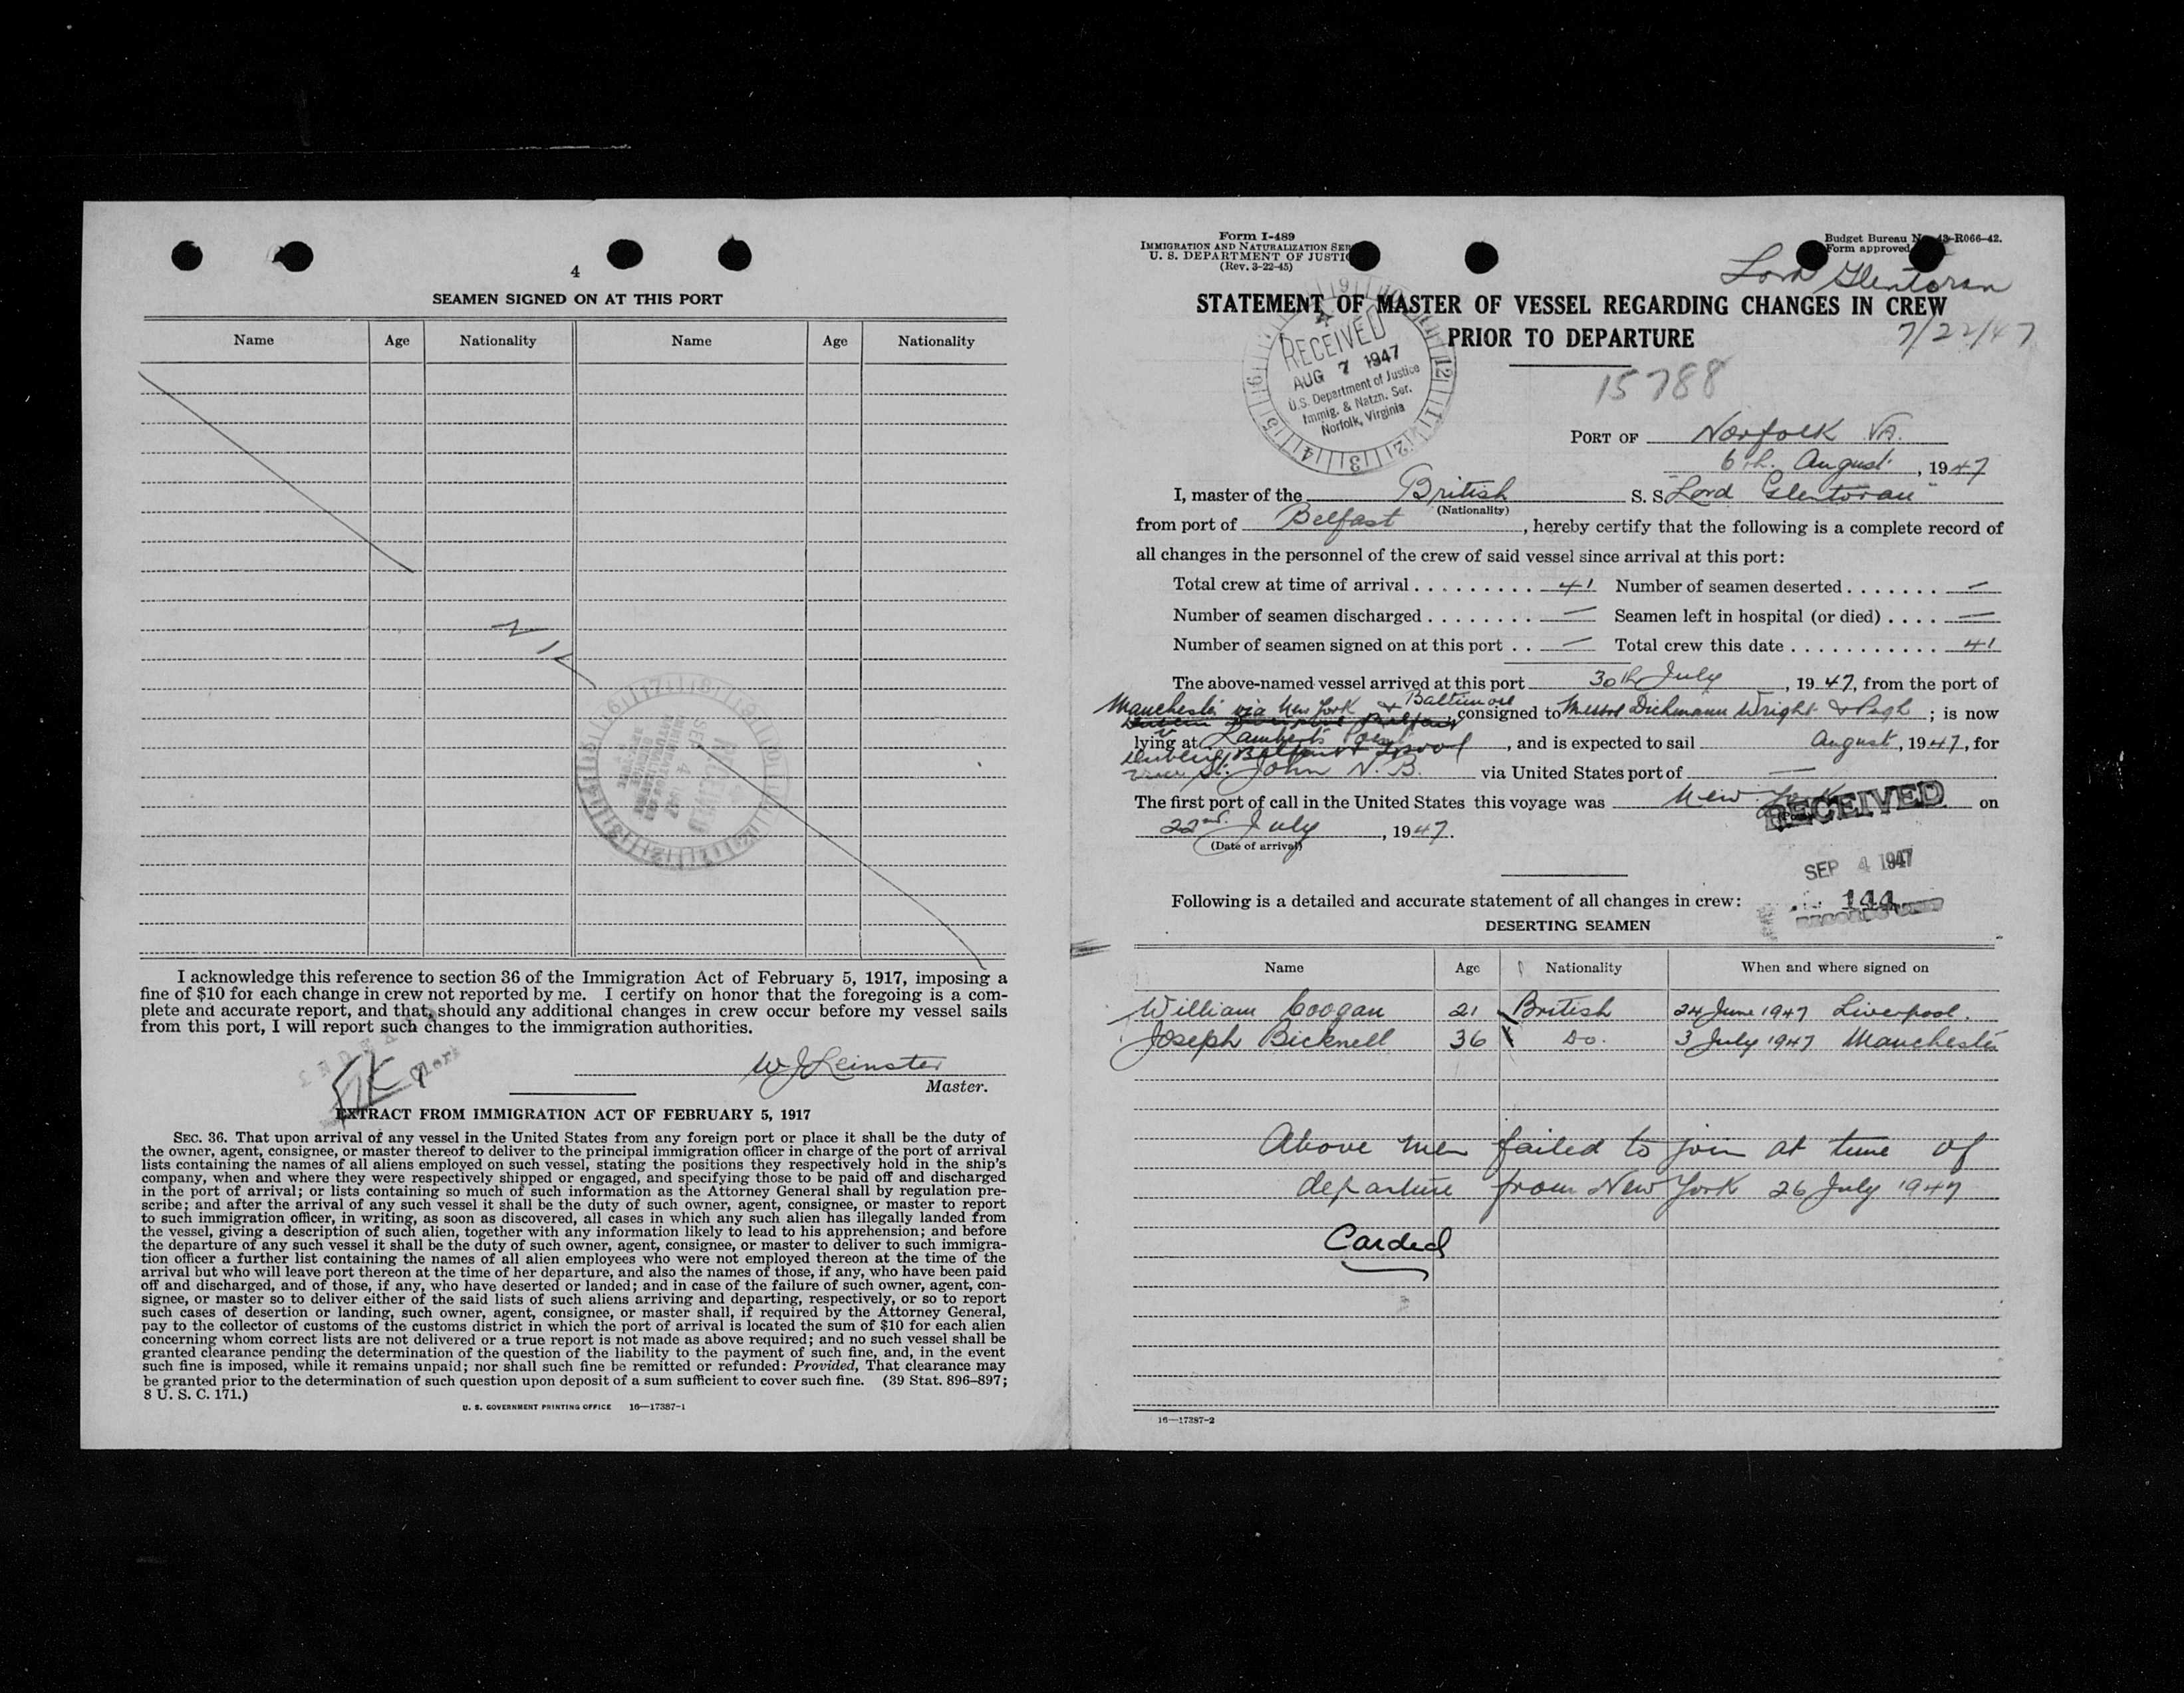 4
SEAMEN SIGNED ON AT THIS PORT
Name Age Nationality Name Age Nationality
NIL
I acknowledge this reference to section 36 of the Immigration Act of February 5, 1917, imposing a
fine of $10 for each change in crew not reported by me. I certify on honor that the foregoing is a com-
plete and accurate report, and that, should any additional changes in crew occur before my vessel sails
from this port, I will report such changes to the immigration authorities.
W J Leinster
Master.
EXTRACT FROM IMMIGRATION ACT OF FEBRUARY 5, 1917
SEC. 36. That upon arrival of any vessel in the United States from any foreign port or place it shall be the duty of
the owner, agent, consignee, or master thereof to deliver to the principal immigration officer in charge of the port of arrival
lists containing the names of all aliens employed on such vessel, stating the positions they respectively hold in the ship's
company, when and where they were respectively shipped or engaged, and specifying those to be paid off and discharged
in the port of arrival; or lists containing so much of such information as the Attorney General shall by regulation pre-
scribe; and after the arrival of any such vessel it shall be the duty of such owner, agent, consignee, or master to report
to such immigration officer, in writing, as soon as discovered, all cases in which any such alien has illegally landed from
the vessel, giving a description of such alien, together with any information likely to lead to his apprehension; and before
the departure of any such vessel it shall be the duty of such owner, agent, consignee, or master to deliver to such immigra-
tion officer a further list containing the names of all alien employees who were not employed thereon at the time of the
arrival but who will leave port thereon at the time of her departure, and also the names of those, if any, who have been paid
off and discharged, and of those, if any, who have deserted or landed; and in case of the failure of such owner, agent, con-
signee, or master so to deliver either of the said lists of such aliens arriving and departing, respectively, or so to report
such cases of desertion or landing, such owner, agent, consignee, or master shall, if required by the Attorney General,
pay to the collector of customs of the customs district in which the port of arrival is located the sum of $10 for each alien
concerning whom correct lists are not delivered or a true report is not made as above required; and no such vessel shall be
granted clearance pending the determination of the question of the liability to the payment of such fine, and, in the event
such fine is imposed, while it remains unpaid; nor shall such fine be remitted or refunded: Provided, That clearance may
be granted prior to the determination of such question upon deposit of a sum sufficient to cover such fine. (39 Stat. 896–897;
8 U. S. C. 171.)
U. S. GOVERNMENT PRINTING OFFICE 16—17387-1
Form I-489
IMMIGRATION AND NATURALIZATION SER
U. S. DEPARTMENT OF JUSTI
(Rev. 3-22-45)
Budget Bureau No. 43-R066-42.
Form approved
Lord Glentoran
STATEMENT OF MASTER OF VESSEL REGARDING CHANGES IN CREW
PRIOR TO DEPARTURE
7/22/47
RECEIVED
AUG 7 1947
U.S. Department of Justice
Immig. & Natzn. Ser.
Norfolk, Virginia
15788
PORT OF Norfolk VA.
6th. August, 1947
I, master of the British S. S. "Lord Glentoran"
(Nationality)
from port of Belfast, hereby certify that the following is a complete record of
all changes in the personnel of the crew of said vessel since arrival at this port:
Total crew at time of arrival . . . . . . . . . . 41 Number of seamen deserted . . . . . . . —
Number of seamen discharged . . . . . . . . — Seamen left in hospital (or died) . . . . —
Number of seamen signed on at this port . . — Total crew this date . . . . . . . . . . . 41
The above-named vessel arrived at this port 30th July, 1947, from the port of
Manchester via New York & Baltimore, consigned to Messrs Dichmann Wright & Pugh; is now
lying at Lamberts Point, and is expected to sail August, 1947, for
St. John N. B. via United States port of —
The first port of call in the United States this voyage was New York on
(Port)
22nd. July, 1947.
(Date of arrival)
RECEIVED
SEP 4 1947
144
Following is a detailed and accurate statement of all changes in crew:
DESERTING SEAMEN
Name Age Nationality When and where signed on
William Coogan 21 British 24 June 1947 Liverpool.
Joseph Bicknell 36 Do. 3 July 1947 Manchester
Above men failed to join at time of
departure from New York 26 July 1947
Carded
16—17387-2